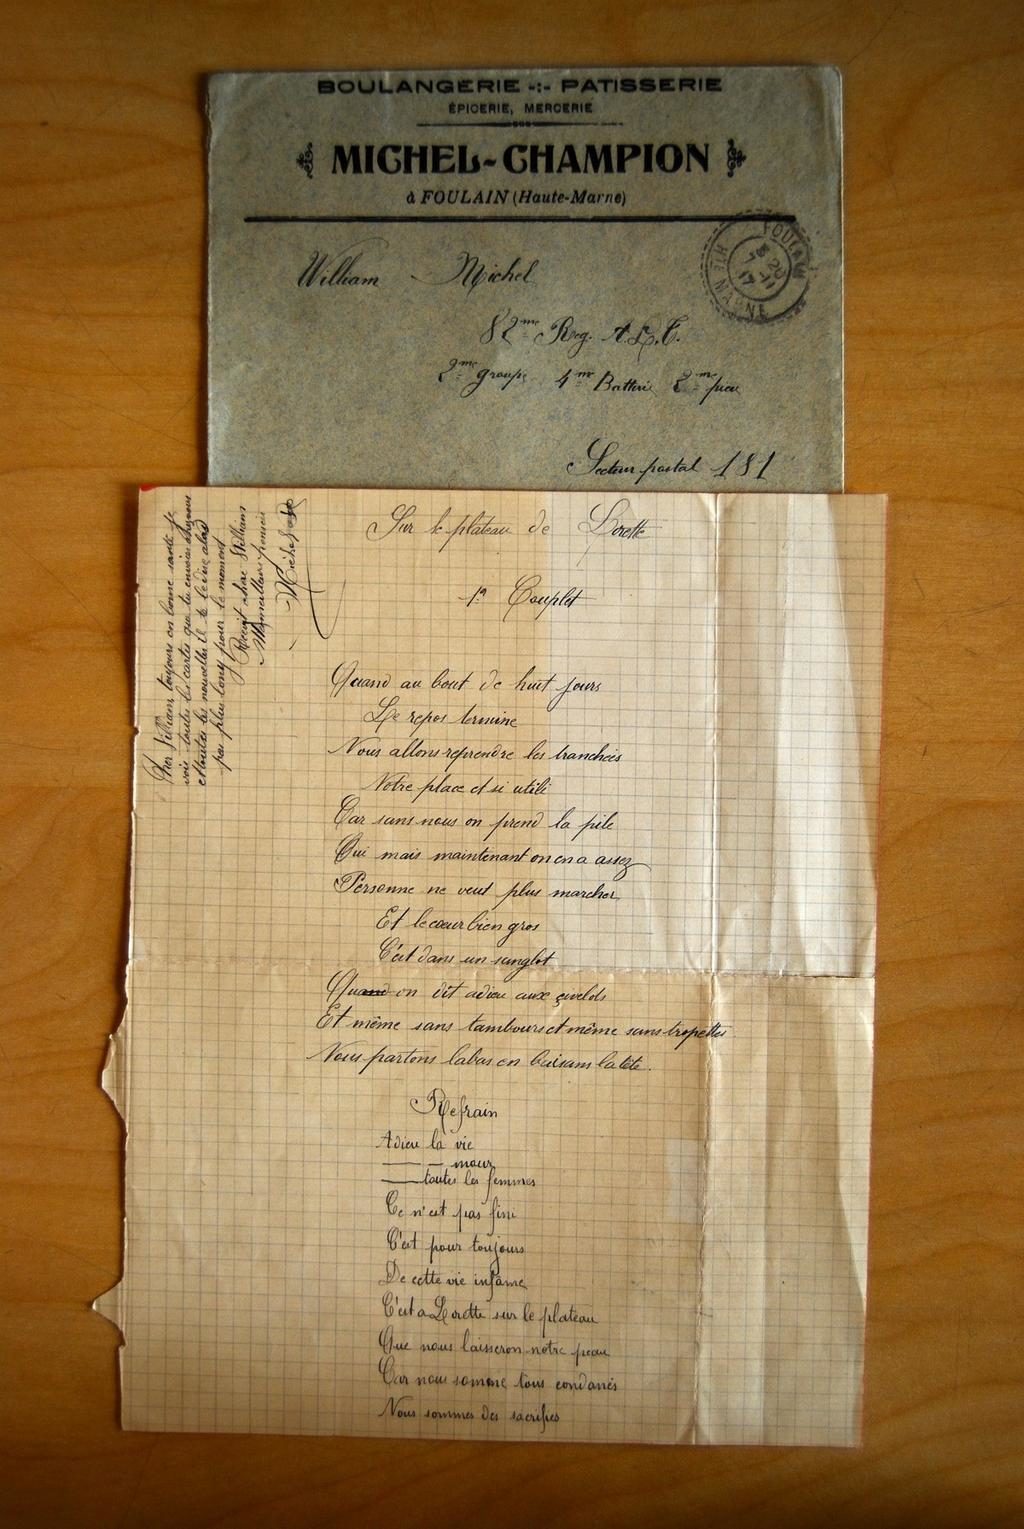 BOULANGERIE -:- PATISSERIE
ÉPICERIE, MERCERIE
MICHEL-CHAMPION
à FOULAIN (Haute-Marne)
FOULAIN
HTE MARNE
William Michel
82me Reg. A.L.C.
2me groupe 4me Batterie 2me
Secteur postal 181
Cher William toujours en bonne santé je
vois toutes les cartes que tu envoies
et toutes les nouvelles il te le dire
pas plus long pour le moment
Reçoit cher William
Meilleurs pensées
Michel
Sur le plateau de Lorette
1er Couplet
Quand au bout de huit jours
Le repos termine
Nous allons reprendre les tranchées
Notre place et si utile
Car sans nous on prend la pile
Oui mais maintenant on en a assez
Personne ne veut plus marcher
Et le cœur bien gros
C'est dans un sanglot
Quand on dit adieu aux civelots
Et même sans tambours et même sans tropettes
Nous partons labas en baisans la tête.
Refrain
Adieu la vie
— — mour
— toutes les femmes
Ce n'est pas fini
C'est pour toujours
De cette vie infâme
C'est a Lorette sur le plateau
Que nous laisseron notre peau
Car nous somme tous condanés
Nous sommes des sacrifies